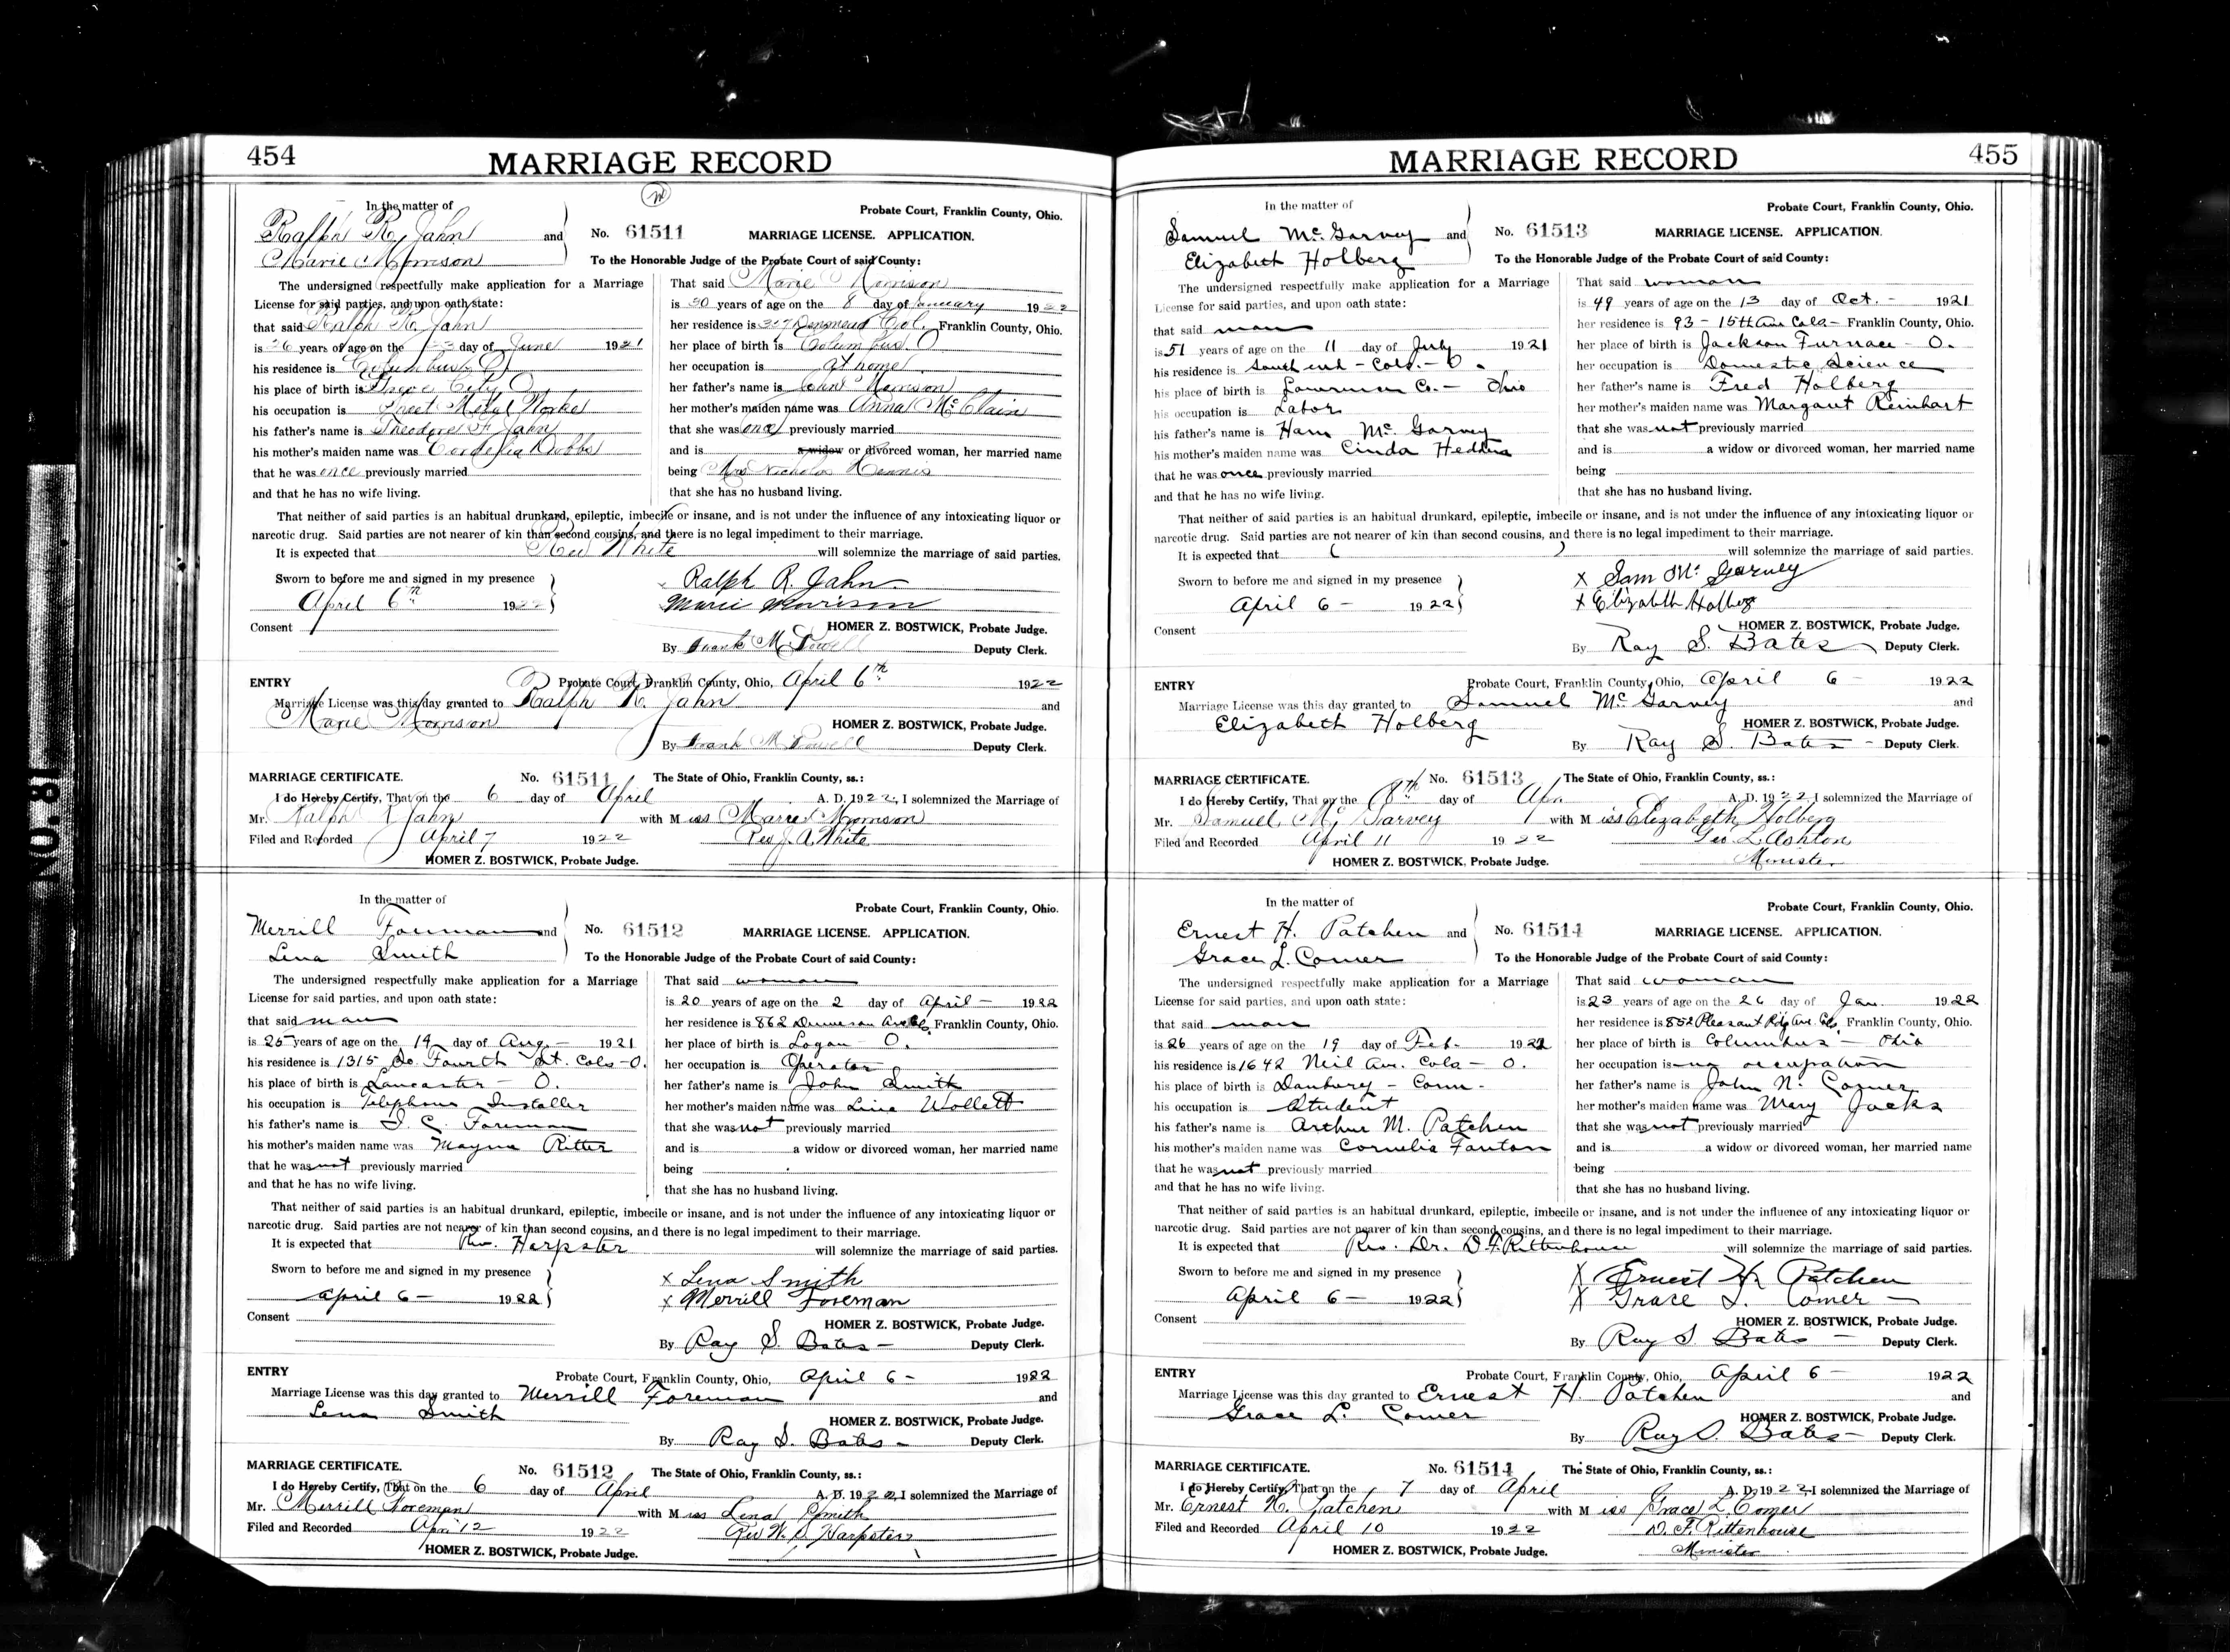 NO. 81
454
MARRIAGE RECORD
In the matter of
Probate Court, Franklin County, Ohio.
Ralph R. Jahn and
No. 61511
MARRIAGE LICENSE. APPLICATION.
Marie Morrison
To the Honorable Judge of the Probate Court of said County:
The undersigned respectfully make application for a Marriage
License for said parties, and upon oath state:
that said Ralph R. Jahn
is 26 years of age on the day of June 1921
his residence is Columbus O
his place of birth is Grove City O
his occupation is Sheet Metal Worker
his father's name is Theodore F. Jahn
his mother's maiden name was Cordelia Dobbs
that he was once previously married
and that he has no wife living.
That said Marie Morrison
is 30 years of age on the 8 day of January 1922
her residence is Col. Franklin County, Ohio.
her place of birth is Columbus O
her occupation is At home
her father's name is John Morrison
her mother's maiden name was Anna McClain
that she was once previously married
and is a widow or divorced woman, her married name
being Mrs Nicholas
that she has no husband living.
That neither of said parties is an habitual drunkard, epileptic, imbecile or insane, and is not under the influence of any intoxicating liquor or
narcotic drug. Said parties are not nearer of kin than second cousins, and there is no legal impediment to their marriage.
It is expected that Rev White will solemnize the marriage of said parties.
Sworn to before me and signed in my presence
April 6th 1922
Ralph R. Jahn
Marie Morrison
Consent
HOMER Z. BOSTWICK, Probate Judge.
By Frank M. Powell Deputy Clerk.
ENTRY
Probate Court, Franklin County, Ohio, April 6th 1922
Marriage License was this day granted to Ralph R. Jahn and
Marie Morrison
HOMER Z. BOSTWICK, Probate Judge.
By Frank M. Powell Deputy Clerk.
MARRIAGE CERTIFICATE. No. 61511 The State of Ohio, Franklin County, ss.:
I do Hereby Certify, That on the 6 day of April A. D. 1922, I solemnized the Marriage of
Mr. Ralph R Jahn with Miss Marie Morrison
Filed and Recorded April 7 1922 Rev J. A. White
HOMER Z. BOSTWICK, Probate Judge.
In the matter of
Probate Court, Franklin County, Ohio.
Merrill Foreman and
No. 61512
MARRIAGE LICENSE. APPLICATION.
Lena Smith
To the Honorable Judge of the Probate Court of said County:
The undersigned respectfully make application for a Marriage
License for said parties, and upon oath state:
that said man
is 25 years of age on the 14 day of Aug. 1921
his residence is 1315 So. Fourth St. Cols-O.
his place of birth is Lancaster - O.
his occupation is Telephone Installer
his father's name is Foreman
his mother's maiden name was Mayme Ritter
that he was not previously married
and that he has no wife living.
That said woman
is 20 years of age on the 2 day of April - 1922
her residence is 862 Franklin County, Ohio.
her place of birth is Logan O.
her occupation is Operator
her father's name is John Smith
her mother's maiden name was Wollett
that she was not previously married
and is a widow or divorced woman, her married name
being
that she has no husband living.
That neither of said parties is an habitual drunkard, epileptic, imbecile or insane, and is not under the influence of any intoxicating liquor or
narcotic drug. Said parties are not nearer of kin than second cousins, and there is no legal impediment to their marriage.
It is expected that Rev. Harpster will solemnize the marriage of said parties.
Sworn to before me and signed in my presence
April 6 - 1922
x Lena Smith
x Merrill Foreman
Consent
HOMER Z. BOSTWICK, Probate Judge.
By Ray S. Bates - Deputy Clerk.
ENTRY
Probate Court, Franklin County, Ohio, April 6 - 1922
Marriage License was this day granted to Merrill Foreman and
Lena Smith
HOMER Z. BOSTWICK, Probate Judge.
By Ray S. Bates - Deputy Clerk.
MARRIAGE CERTIFICATE. No. 61512 The State of Ohio, Franklin County, ss.:
I do Hereby Certify, That on the 6 day of April A. D. 1922, I solemnized the Marriage of
Mr. Merrill Foreman with Miss Lena Smith
Filed and Recorded Apri 12 1922 Rev W. D. Harpster
HOMER Z. BOSTWICK, Probate Judge.
MARRIAGE RECORD
455
In the matter of
Probate Court, Franklin County, Ohio.
Samuel McGarvey and
No. 61513
MARRIAGE LICENSE. APPLICATION.
Elizabeth Holberg
To the Honorable Judge of the Probate Court of said County:
The undersigned respectfully make application for a Marriage
License for said parties, and upon oath state:
that said man
is 51 years of age on the 11 day of July 1921
his residence is South end - Cols. - O.
his place of birth is Lawrence Co. - Ohio
his occupation is Labor
his father's name is Ham McGarvey
his mother's maiden name was Cinda
that he was once previously married
and that he has no wife living.
That said woman
is 49 years of age on the 13 day of Oct. - 1921
her residence is 93 - 15th Ave Cols - Franklin County, Ohio.
her place of birth is Jackson Furnace - O.
her occupation is Domestic Science
her father's name is Fred Holberg
her mother's maiden name was Margaret Reinhart
that she was not previously married
and is a widow or divorced woman, her married name
being
that she has no husband living.
That neither of said parties is an habitual drunkard, epileptic, imbecile or insane, and is not under the influence of any intoxicating liquor or
narcotic drug. Said parties are not nearer of kin than second cousins, and there is no legal impediment to their marriage.
It is expected that ( ) will solemnize the marriage of said parties.
Sworn to before me and signed in my presence
April 6 - 1922
x Sam McGarvey
x Elizabeth Holberg
Consent
HOMER Z. BOSTWICK, Probate Judge.
By Ray S. Bates Deputy Clerk.
ENTRY
Probate Court, Franklin County, Ohio, April 6 - 1922
Marriage License was this day granted to Samuel McGarvey and
Elizabeth Holberg
HOMER Z. BOSTWICK, Probate Judge.
By Ray S. Bates - Deputy Clerk.
MARRIAGE CERTIFICATE. No. 61513 The State of Ohio, Franklin County, ss.:
I do Hereby Certify, That on the 8th day of Apr A. D. 1922 I solemnized the Marriage of
Mr. Samuel McGarvey with Miss Elizabeth Holberg
Filed and Recorded April 11 1922 Geo L. Ashton
HOMER Z. BOSTWICK, Probate Judge. Minister
In the matter of
Probate Court, Franklin County, Ohio.
Ernest H. Patchen and
No. 61514
MARRIAGE LICENSE. APPLICATION.
Grace L. Comer
To the Honorable Judge of the Probate Court of said County:
The undersigned respectfully make application for a Marriage
License for said parties, and upon oath state:
that said man
is 26 years of age on the 19 day of Feb. 1922
his residence is 1642 Neil Ave. Cols - O.
his place of birth is Danbury - Conn -
his occupation is Student
his father's name is Arthur M. Patchen
his mother's maiden name was Cornelia Fanton
that he was not previously married
and that he has no wife living.
That said woman
is 23 years of age on the 26 day of Jan. 1922
her residence is 852 Pleasant Rdg Ave. Cols, Franklin County, Ohio.
her place of birth is Columbus - Ohio
her occupation is no occupation
her father's name is John N. Comer
her mother's maiden name was Mary Jacks
that she was not previously married
and is a widow or divorced woman, her married name
being
that she has no husband living.
That neither of said parties is an habitual drunkard, epileptic, imbecile or insane, and is not under the influence of any intoxicating liquor or
narcotic drug. Said parties are not nearer of kin than second cousins, and there is no legal impediment to their marriage.
It is expected that Rev. Dr. D. F. Rittenhouse will solemnize the marriage of said parties.
Sworn to before me and signed in my presence
April 6 - 1922
X Ernest H. Patchen
X Grace L. Comer
Consent
HOMER Z. BOSTWICK, Probate Judge.
By Ray S Bates - Deputy Clerk.
ENTRY
Probate Court, Franklin County, Ohio, April 6 - 1922
Marriage License was this day granted to Ernest H. Patchen and
Grace L. Comer
HOMER Z. BOSTWICK, Probate Judge.
By Ray S. Bates - Deputy Clerk.
MARRIAGE CERTIFICATE. No. 61514 The State of Ohio, Franklin County, ss.:
I do Hereby Certify, That on the 7 day of April A. D. 1922 I solemnized the Marriage of
Mr. Ernest H. Patchen with Miss Grace L. Comer
Filed and Recorded April 10 1922 D. F. Rittenhouse
HOMER Z. BOSTWICK, Probate Judge. Minister